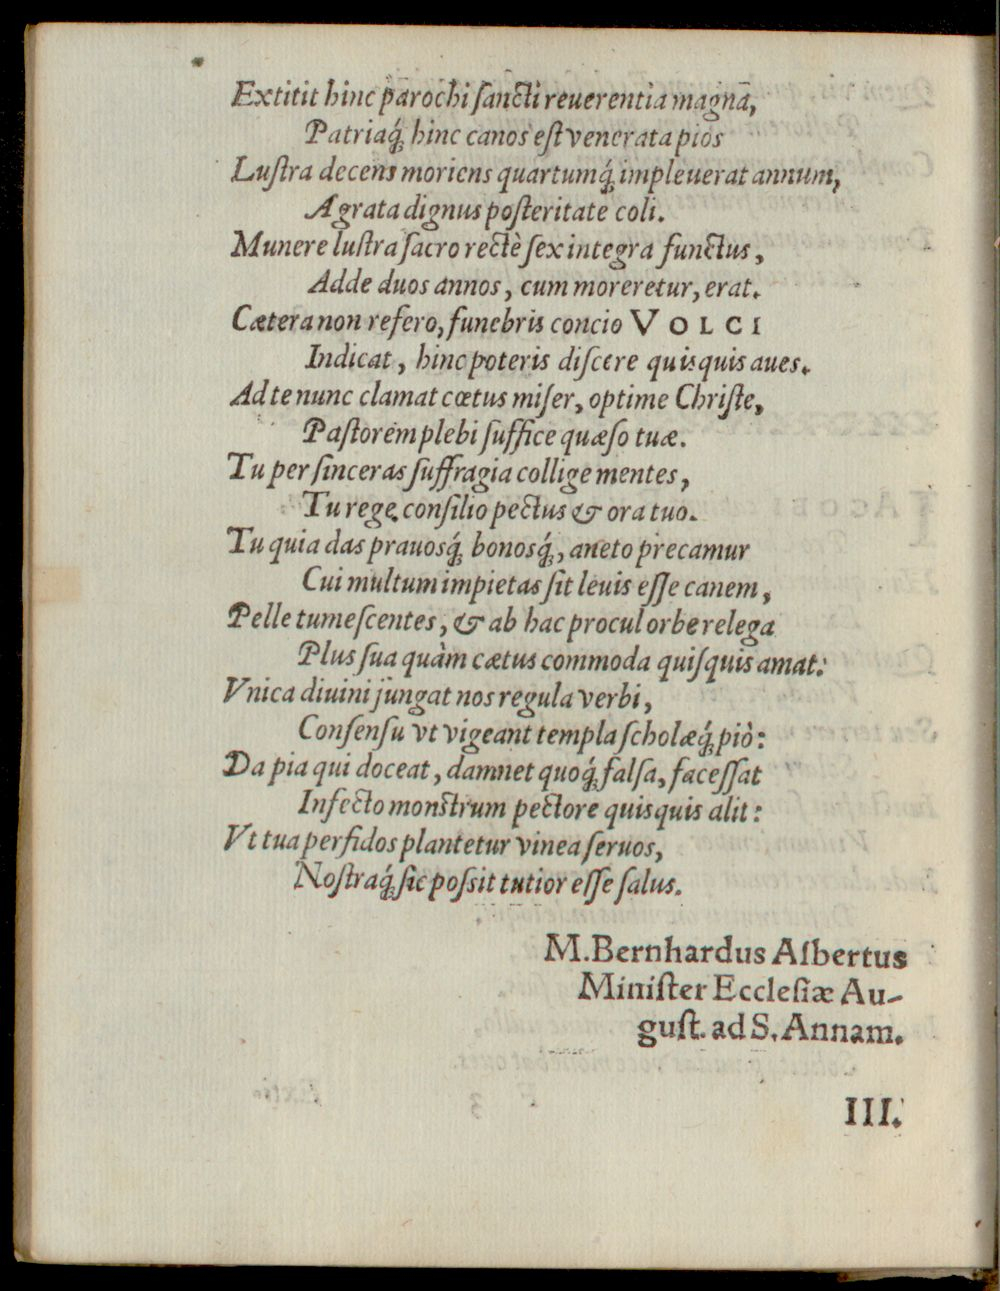 Extitit hinc parochi ſancti reuerentia magna,
Patriaq́; hinc canos eſt venerata pios
Luſtra decens moriens quartumq́; impleuerat annum,
A grata dignus poſteritate coli.
Munere luſtra ſacro rectè ſex integra functus,
Adde duos annos, cum moreretur, erat.
Cætera non refero, funebris concio VOLCI
Indicat, hinc poteris diſcere quisquis aues.
Ad te nunc clamat cœtus miſer, optime Chriſte,
Paſtorem plebi ſuffice quæſo tuæ.
Tu per ſinceras ſuffragia collige mentes,
Tu rege conſilio pectus & ora tuo.
Tu quia das prauosq́; bonosq́;, aneto precamur
Cui multum impietas ſit leuis eſſe canem,
Pelle tumeſcentes, & ab hac procul orbe relega
Plus ſua quàm cætus commoda quiſquis amat:
Vnica diuini jungat nos regula verbi,
Conſenſu vt vigeant templa ſcholæq́; piò:
Da pia qui doceat, damnet quoq́; falſa, faceſſat
Infecto monſtrum pectore quisquis alit:
Vt tua perfidos plantetur vinea ſeruos,
Noſtraq́; ſic poſsit tutior eſſe ſalus.
M. Bernhardus Albertus
Miniſter Eccleſiæ Au-
guſt. ad S. Annam.
III.